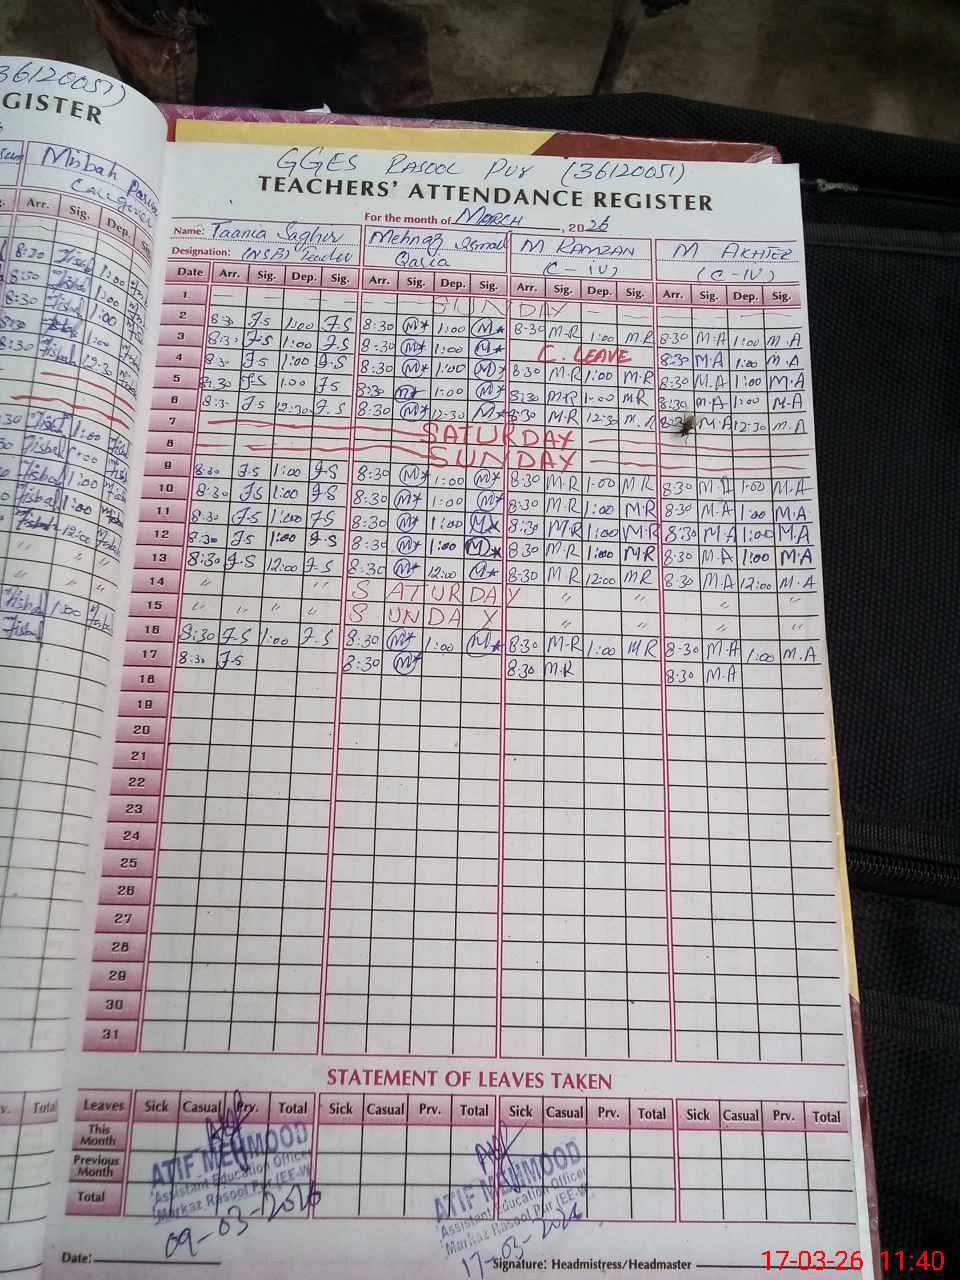 36120051)
GISTER
Misbah
Caregiver
Arr. Sig. Dep. Sig.
8:30 1:00
8:30 1:00
8:30 1:00
8:30 12:30
1:00
12:00
1:00
GGES RASOOL PUR (36120051)
TEACHERS' ATTENDANCE REGISTER
For the month of MARCH, 2026
Name: Taania Saghir Mehnaz M RAMZAN M AKHTER
Designation: (NSB) Teacher Qaria (C-IV) (C-IV)
Date Arr. Sig. Dep. Sig. Arr. Sig. Dep. Sig. Arr. Sig. Dep. Sig. Arr. Sig. Dep. Sig.
1 SUNDAY
2 8:30 T-S 1:00 T-S 8:30 M* 1:00 M* 8:30 M-R 1:00 M.R 8:30 M.A 1:00 M.A
3 8:30 T-S 1:00 T-S 8:30 M* 1:00 M* C. LEAVE 8:30 M.A 1:00 M.A
4 8:30 T-S 1:00 T-S 8:30 M* 1:00 M* 8:30 M-R 1:00 M.R 8:30 M.A 1:00 M.A
5 8:30 T-S 1:00 T-S 8:30 M* 1:00 M* 8:30 M-R 1:00 MR 8:30 M.A 1:00 M.A
6 8:30 T-S 12:30 T-S 8:30 M* 12:30 M* 8:30 M-R 12:30 M.R 8:30 M.A 12:30 M.A
7 SATURDAY
8 SUNDAY
9 8:30 T-S 1:00 T-S 8:30 M* 1:00 M* 8:30 M-R 1:00 M.R 8:30 M.A 1:00 M.A
10 8:30 T-S 1:00 T-S 8:30 M* 1:00 M* 8:30 M-R 1:00 M.R 8:30 M.A 1:00 M.A
11 8:30 T-S 1:00 T-S 8:30 M* 1:00 M* 8:30 M-R 1:00 M.R 8:30 M.A 1:00 M.A
12 8:30 T-S 1:00 T-S 8:30 M* 1:00 M* 8:30 M-R 1:00 MR 8:30 M.A 1:00 M.A
13 8:30 T-S 12:00 T-S 8:30 M* 12:00 M* 8:30 M-R 12:00 MR 8:30 M.A 12:00 M.A
14 " " SATURDAY " " " "
15 " " " " SUNDAY " " " "
16 8:30 T-S 1:00 T-S 8:30 M* 1:00 M* 8:30 M-R 1:00 MR 8:30 M.A 1:00 M.A
17 8:30 T-S 8:30 M* 8:30 M.R 8:30 M.A
18
19
20
21
22
23
24
25
26
27
28
29
30
31
STATEMENT OF LEAVES TAKEN
v. Total
Leaves Sick Casual Prv. Total Sick Casual Prv. Total Sick Casual Prv. Total Sick Casual Prv. Total
This Month
Previous Month
Total
ATIF MEHMOOD
Assistant Education Officer
Markaz Rasool Pur (EE-W)
09-03-2026
ATIF MEHMOOD
Assistant Education Officer
Markaz Rasool Pur (EE-W)
17-03-2026
Date: Signature: Headmistress/Headmaster
17-03-26 11:40